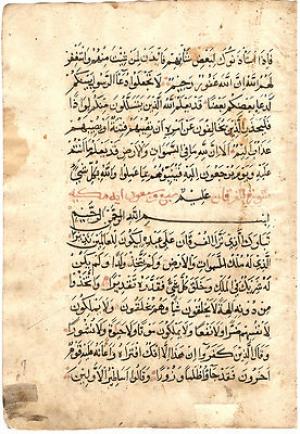 فاذا استاذنوك لبعض شانهم فاذن لمن شئت منهم واستغفر
لهم الله ان الله غفور رحيم لا تجعلوا دعا الرسول بينكم
كدعا بعضكم بعضا قد يعلم الله الذين يتسللون منكم لواذا
فليحذر الذين يخالفون عن امره ان تصيبهم فتنة او يصيبهم
عذاب اليم الا ان لله ما في السموات والارض قد يعلم ما انتم
عليه ويوم يرجعون اليه فينبئهم بما عملوا والله بكل شيء
سورة الفرقان عليم وسبعون اية مكية
بسم الله الرحمن الرحيم
تبارك الذي نزل الفرقان على عبده ليكون للعالمين نذيرا
الذي له ملك السموات والارض ولم يتخذ ولدا ولم يكن
له شريك في الملك وخلق كل شيء فقدره تقديرا واتخذوا
من دونه الهة لا يخلقون شيئا وهم يخلقون ولا يملكون
لانفسهم ضرا ولا نفعا ولا يملكون موتا ولا حيوة ولا نشورا
وقال الذين كفروا ان هذا الا افك افتراه واعانه عليه قوم
اخرون فقد جاؤا ظلما وزورا وقالوا اساطير الاولين